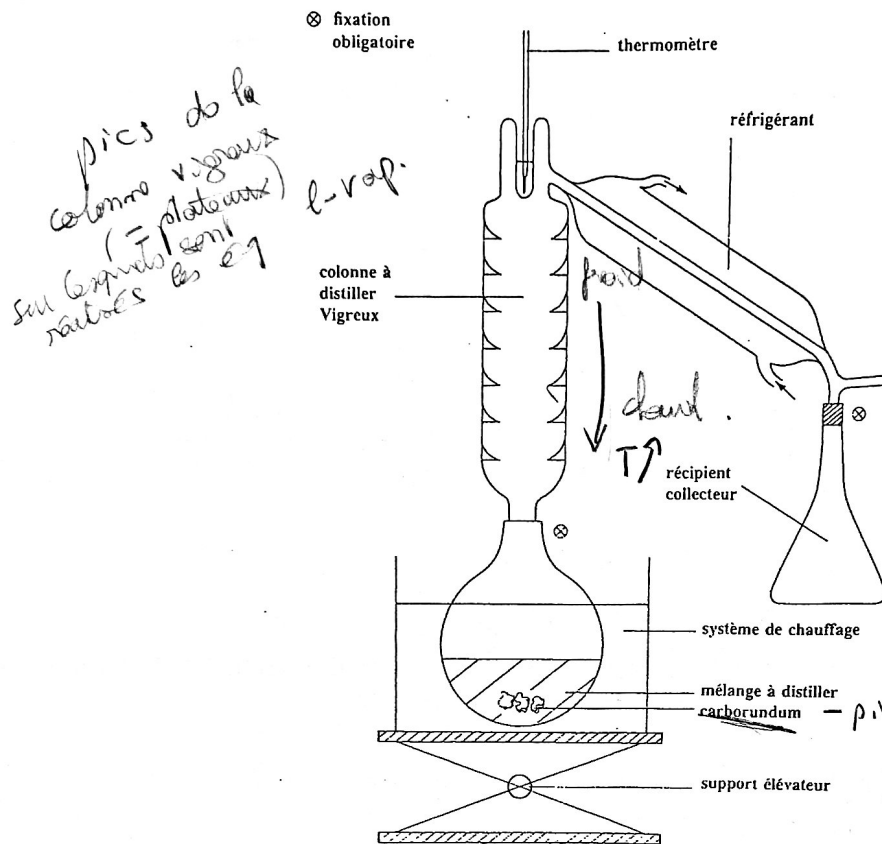 ⊗ fixation
obligatoire
thermomètre
réfrigérant
pics de la
colonne vigreux
(= plateaux)
sur lesquels sont
réalisés les éq
l-vap.
colonne à
distiller
Vigreux
froid
chaud.
T↗
récipient
collecteur
système de chauffage
mélange à distiller
carborundum
support élévateur